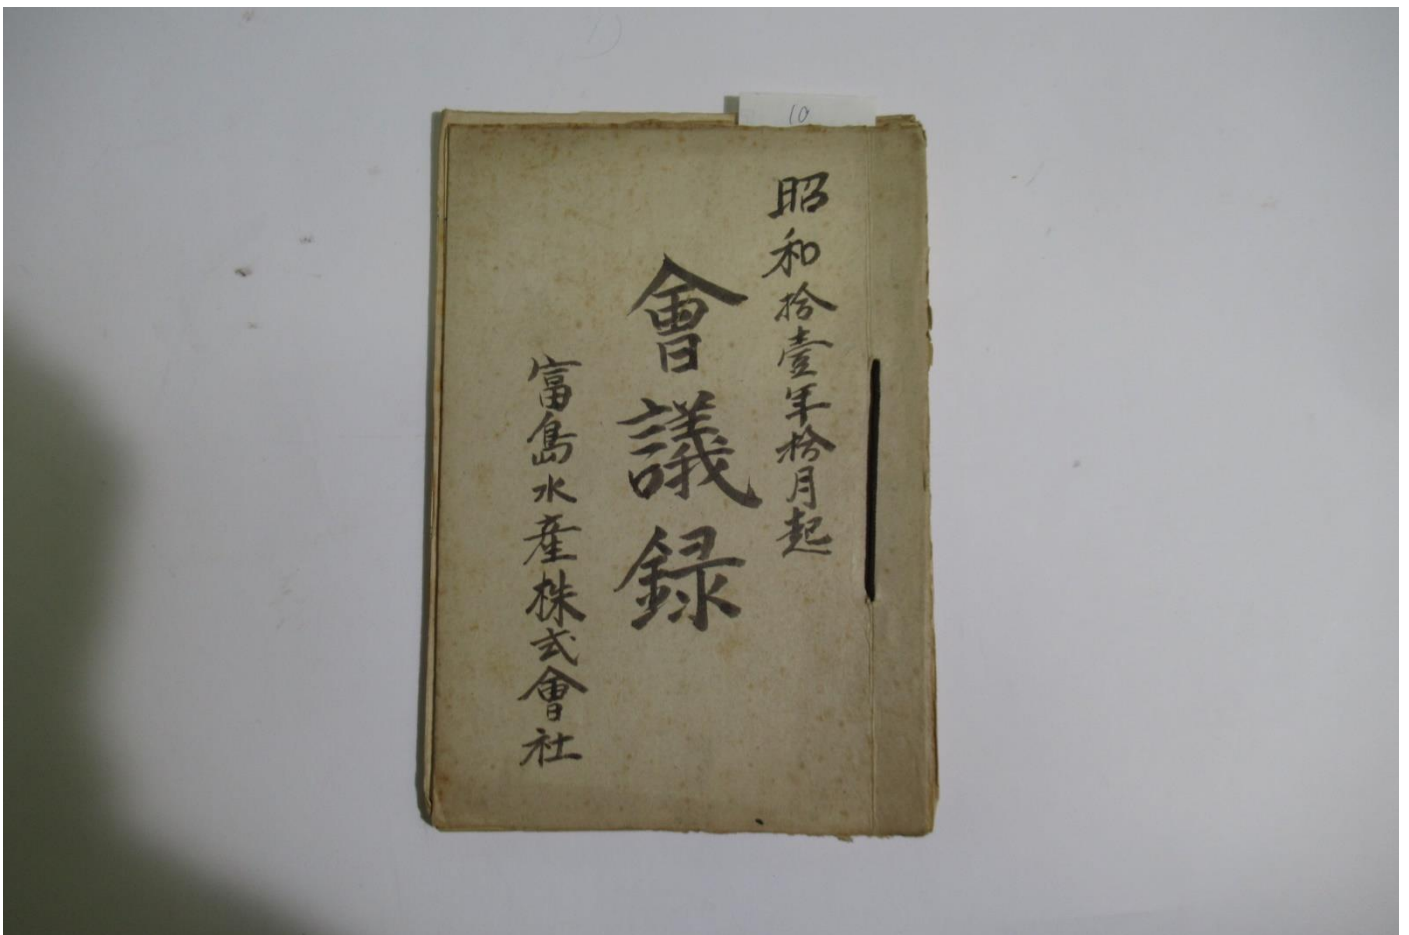 10
昭和拾壹年拾月起
會議録
富島水産株式會社